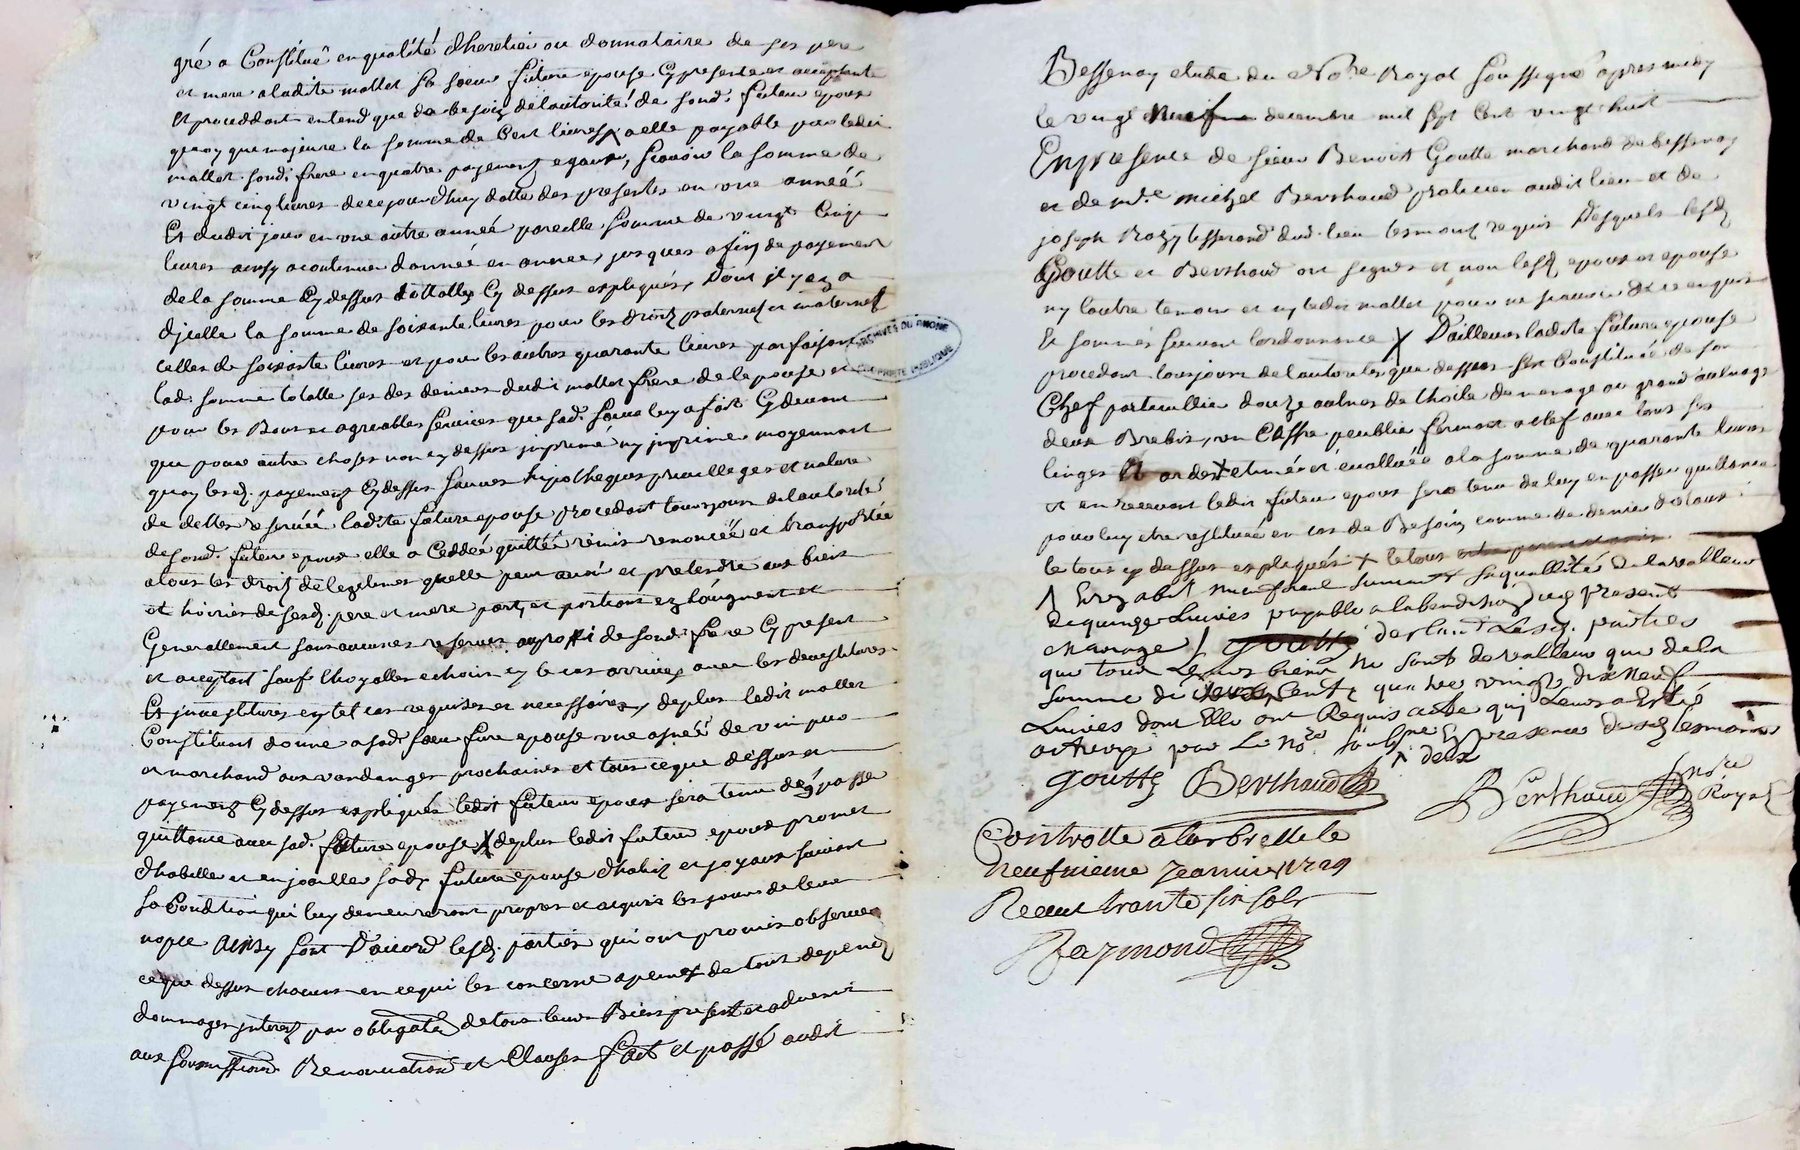 gré a Constitué en qualité dheretier ou donnataire de ses pere
et mere a ladite mallet sa soeur future epouse Cy presente et acceptante
et proceddant entend que de besoin de lautorité de sond. futeur epoux
quoy que majeure la somme de Cent livres a elle payable par ledit
mallet sond. frere en quatre payementz egaux, scavoir la somme de
vingt cinq livres de ce jourdhuy datte des presentes en une anneé
Et dudit jour en une autre anneé pareille somme de vingt Cinq
livres ainsy a continuer danneé en anneé, jusques a fin de payement
de la somme Cy dessus tottalle Cy dessus expliqueé, Dont il y en a
dicelle la somme de soixante livres pour les droitz paternelz et maternelz
celles de soixante livres et pour les autres quarante livres parfaisant
lad. somme totalle ses des deniers dudit mallet frere de lepouse et
pour les Bons et agreables services que sad. soeur luy a fait Cy devant
que pour autre choses non cy dessus imprimé ny imprimer moyennant
quoy lesd. payementz Cy dessus sauves hipotheques privilleges et nature
de dettes reserveé ladite future epouse procedant tousjours de lautorité
de sond. futeur epoux elle a Ceddeé quitteé remis renonceé et transporteé
a tous les droitz de legitimes quelle peut avoir et pretendre aux biens
et hoiries de sesd. pere et mere part et portions en augment et
Generallement sans aucunes reserves au proffit de sond. frere Cy present
et acceptant sauf Loyalles echoir sy le cas arrive, avec les devestitures
Et investitures en tel cas requises et necessaires, deplus ledit mallet
Constituant donne a sad. soeur future epouse une aneé de vin pur
et marchand aux vandanges prochaines et tout ce que dessus et
payementz Cy dessus expliqués ledit futeur epoux sera tenu den passer
quittance avec sad. future epouse X deplus ledit futeur epoux promet
dhabiller et enjoailler sad. future epouse dhabitz et joyaux suivant
sa Condition qui luy demeureront propres et acquis les jours de leur
nopce Ainsy sont Daccord lesd. parties qui ont promis observer
ce que dessus chacuns en ce qui les concerne a peines de tout depens
dommages interetz par obligation de tous leurs Biens present et advenir
aux soumissions Renonciations et Clauses fait et passé audit
Bessenay etude du No.re Royal Soussigné apres midy
le vingt neuf decembre mil sept Cent vingt huit
En presence de sieur Benoist Goutte marchand de Bessenay
et de m.re michel Berthaud praticien audit lieu et de
joseph Razy tisserand dud. lieu tesmoins requis Desquels lesd.
Goutte et Berthaud ont signés et non lesd. epoux et epouse
ny lautre temoin et ny ledit mallet pour ne scavoir de ce enquis
Et sommés suivant lordonnance X D'ailleurs ladite future epouse
procedant tousjours de lautorité que dessus sest Constitueé de son
Chef particullier douze aulnes de thoile de menage au grand aulnage
deux Brebis, un Coffre peuplier fermant a clef avec tous ses
linges et ardes X etimeé et evalluée a la somme de quarante livres
et en recevant ledit futeur epoux sera tenu de luy en passer quittance
pour luy etre restitueé en cas de Besoin comme de denier dotaux
le tout cy dessus expliqués X le tout
X Un abit suivant sa quallité de la valleur
de quinze Livres payable a la benediction du present
mariage X Goutte declarant Lesd. parties
que tous Leurs biens Ne sont de valleur que de la
somme de deux Cents quatre vingts dix Neuf
Livres dont Elle ont Requis acte qui Leurs a Esté
octroyé par Le No.re Soubsigné En presence desd. tesmoins
X deux
Goutte Berthaud
Berthaud no.re Royal
Controlle a larbrelle le
neufvieme Jeanvier 1729
Receu trante six sols
Raymond
ARCHIVES DU RHONE
PROPRIÉTÉ PUBLIQUE